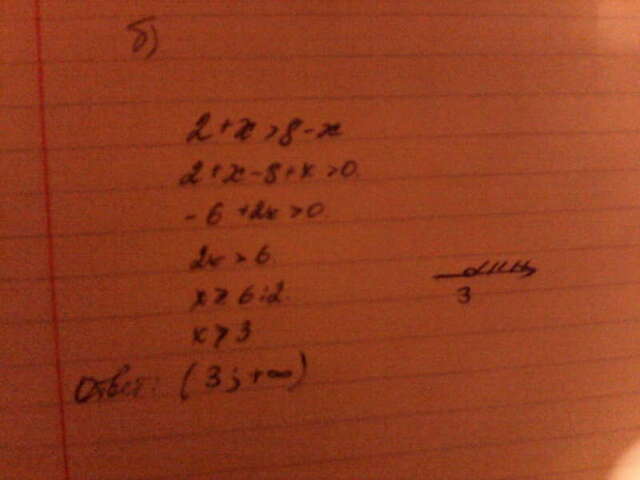 б)
2+x>8-x
2+x-8+x>0
-6+2x>0
2x>6
x>6:2
x>3
3
Ответ: (3;+∞)